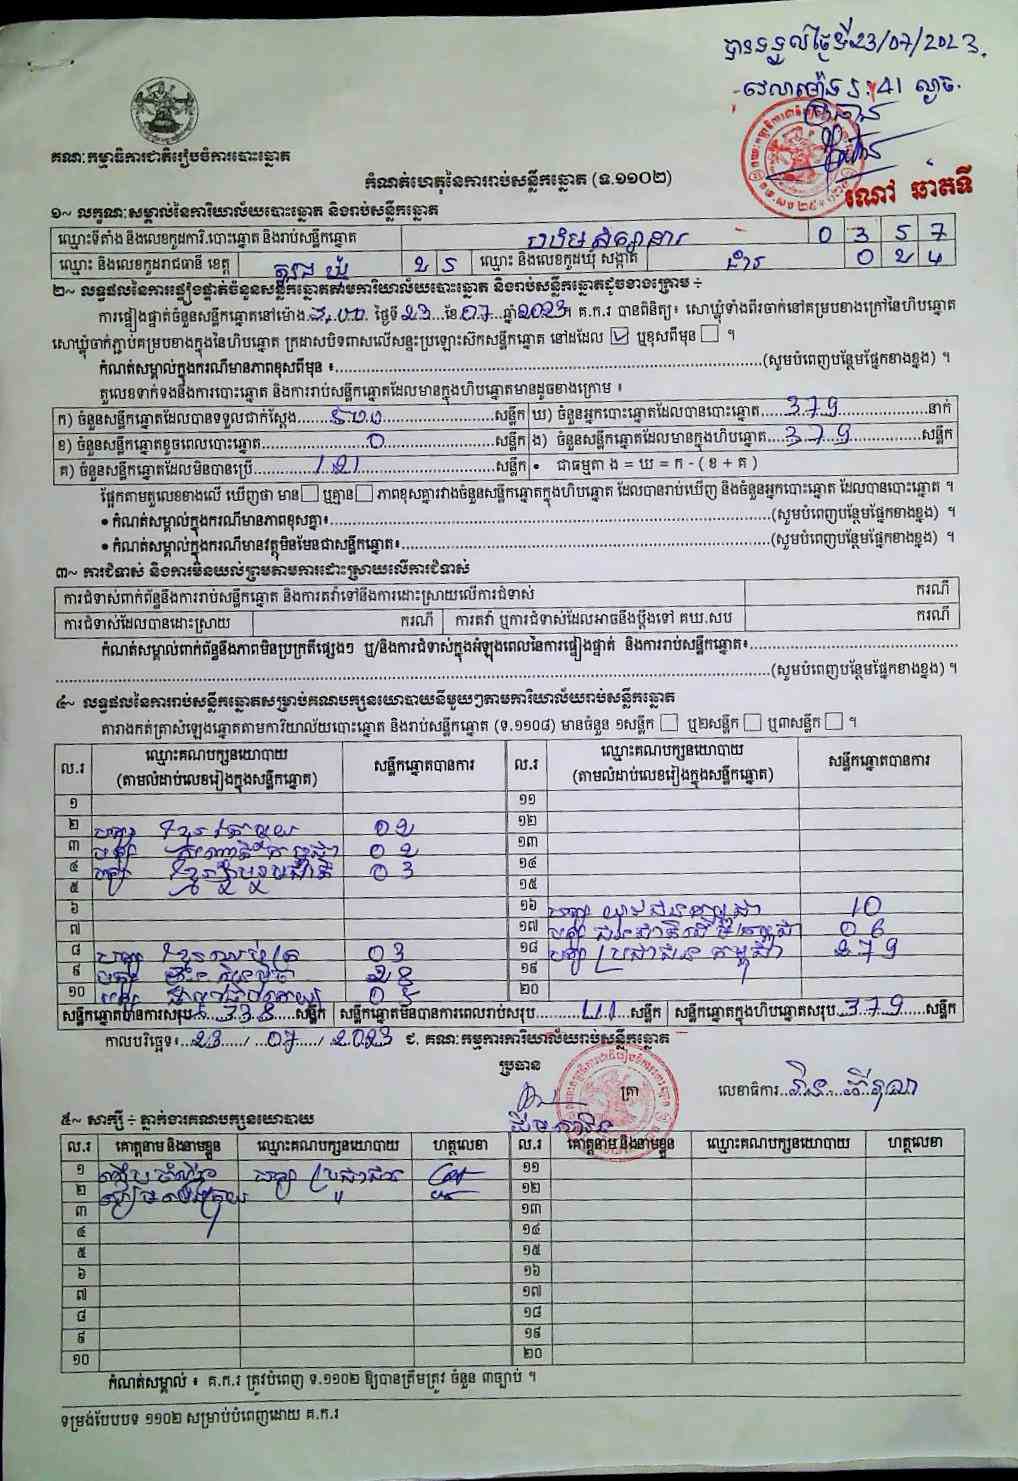 បានទទួលថ្ងៃទី 23/07/2023.
វេលាម៉ោង 5:41 ល្ងាច.
ប្រធាន
ណៅ ឆាតទី
គណៈកម្មាធិការជាតិរៀបចំការបោះឆ្នោត
កំណត់ហេតុនៃការរាប់សន្លឹកឆ្នោត (ទ.១១០២)
១~ លក្ខណៈសម្គាល់នៃការិយាល័យបោះឆ្នោត និងរាប់សន្លឹកឆ្នោត
ឈ្មោះទីតាំង និងលេខកូដការិ.បោះឆ្នោត និងរាប់សន្លឹកឆ្នោត 0 3 5 7
ឈ្មោះ និងលេខកូដរាជធានី ខេត្ត ត្បូងឃ្មុំ 2 5 ឈ្មោះ និងលេខកូដឃុំ សង្កាត់ ជាំ 0 2 4
២~ លទ្ធផលនៃការផ្ទៀងផ្ទាត់ចំនួនសន្លឹកឆ្នោតតាមការិយាល័យបោះឆ្នោត និងរាប់សន្លឹកឆ្នោតដូចខាងក្រោម ÷
ការផ្ទៀងផ្ទាត់ចំនួនសន្លឹកឆ្នោតនៅម៉ោង ថ្ងៃទី 23 ខែ 07 ឆ្នាំ 2023 ។ គ.ក.រ បានពិនិត្យ៖ សោឃ្លុំទាំងពីរចាក់នៅគម្របខាងក្រៅនៃហិបឆ្នោត
សោឃ្លុំចាក់ភ្ជាប់គម្របខាងក្នុងនៃហិបឆ្នោត ក្រដាសបិទពាសលើសន្ទះប្រឡោះស៊កសន្លឹកឆ្នោត នៅដដែល ☑ ឬខុសពីមុន ☐ ។
កំណត់សម្គាល់ក្នុងករណីមានភាពខុសពីមុន ៖ (សូមបំពេញបន្ថែមផ្នែកខាងខ្នង) ។
តួលេខទាក់ទងនឹងការបោះឆ្នោត និងការរាប់សន្លឹកឆ្នោតដែលមានក្នុងហិបឆ្នោតមានដូចខាងក្រោម ៖
ក) ចំនួនសន្លឹកឆ្នោតដែលបានទទួលជាក់ស្តែង 500 សន្លឹក ឃ) ចំនួនអ្នកបោះឆ្នោតដែលបានបោះឆ្នោត 379 នាក់
ខ) ចំនួនសន្លឹកឆ្នោតខូចពេលបោះឆ្នោត 0 សន្លឹក ង) ចំនួនសន្លឹកឆ្នោតដែលមានក្នុងហិបឆ្នោត 379 សន្លឹក
គ) ចំនួនសន្លឹកឆ្នោតដែលមិនបានប្រើ 121 សន្លឹក • ជាធម្មតា ង = ឃ = ក - ( ខ + គ )
ផ្អែកតាមតួលេខខាងលើ ឃើញថា មាន ☐ ឬគ្មាន ☐ ភាពខុសគ្នារវាងចំនួនសន្លឹកឆ្នោតក្នុងហិបឆ្នោត ដែលបានរាប់ឃើញ និងចំនួនអ្នកបោះឆ្នោត ដែលបានបោះឆ្នោត ។
• កំណត់សម្គាល់ក្នុងករណីមានភាពខុសគ្នា៖ (សូមបំពេញបន្ថែមផ្នែកខាងខ្នង) ។
• កំណត់សម្គាល់ក្នុងករណីមានវត្ថុមិនមែនជាសន្លឹកឆ្នោត៖ (សូមបំពេញបន្ថែមផ្នែកខាងខ្នង) ។
៣~ ការជំទាស់ និងការមិនយល់ព្រមតាមការដោះស្រាយលើការជំទាស់
ការជំទាស់ពាក់ព័ន្ធនឹងការរាប់សន្លឹកឆ្នោត និងការតវ៉ាទៅនឹងការដោះស្រាយលើការជំទាស់ ករណី
ការជំទាស់ដែលបានដោះស្រាយ ករណី ការតវ៉ា ឬការជំទាស់ដែលអាចនឹងប្តឹងទៅ គឃ.សប ករណី
កំណត់សម្គាល់ពាក់ព័ន្ធនឹងភាពមិនប្រក្រតីផ្សេងៗ ឬ/និងការជំទាស់ក្នុងអំឡុងពេលនៃការផ្ទៀងផ្ទាត់ និងការរាប់សន្លឹកឆ្នោត៖
(សូមបំពេញបន្ថែមផ្នែកខាងខ្នង) ។
៤~ លទ្ធផលនៃការរាប់សន្លឹកឆ្នោតសម្រាប់គណបក្សនយោបាយនីមួយៗតាមការិយាល័យរាប់សន្លឹកឆ្នោត
តារាងកត់ត្រាសំឡេងឆ្នោតតាមការិយាល័យបោះឆ្នោត និងរាប់សន្លឹកឆ្នោត (ទ.១១០៨) មានចំនួន ១សន្លឹក ☐ ឬ២សន្លឹក ☐ ឬ៣សន្លឹក ☐ ។
ល.រ ឈ្មោះគណបក្សនយោបាយ (តាមលំដាប់លេខរៀងក្នុងសន្លឹកឆ្នោត) សន្លឹកឆ្នោតបានការ ល.រ ឈ្មោះគណបក្សនយោបាយ (តាមលំដាប់លេខរៀងក្នុងសន្លឹកឆ្នោត) សន្លឹកឆ្នោតបានការ
១ ១១
២ បក្ស ខ្មែរ 02 ១២
៣ បក្ស 02 ១៣
៤ បក្ស ខ្មែរ 03 ១៤
៥ ១៥
៦ ១៦ បក្ស 10
៧ ១៧ បក្ស 06
៨ បក្ស ខ្មែរ 03 ១៨ បក្ស ប្រជាជន កម្ពុជា 279
៩ បក្ស 28 ១៩
១០ បក្ស 05 ២០
សន្លឹកឆ្នោតបានការសរុប 338 សន្លឹក សន្លឹកឆ្នោតមិនបានការពេលរាប់សរុប 41 សន្លឹក សន្លឹកឆ្នោតក្នុងហិបឆ្នោតសរុប 379 សន្លឹក
កាលបរិច្ឆេទ៖ 23 / 07 / 2023 ជ. គណៈកម្មការការិយាល័យរាប់សន្លឹកឆ្នោត
ប្រធាន ត្រា លេខាធិការ
៥~ សាក្សី ÷ ភ្នាក់ងារគណបក្សនយោបាយ
ល.រ គោត្តនាម និងនាមខ្លួន ឈ្មោះគណបក្សនយោបាយ ហត្ថលេខា ល.រ គោត្តនាម និងនាមខ្លួន ឈ្មោះគណបក្សនយោបាយ ហត្ថលេខា
១ បក្ស ប្រជាជន ១១
២ ១២
៣ ១៣
៤ ១៤
៥ ១៥
៦ ១៦
៧ ១៧
៨ ១៨
៩ ១៩
១០ ២០
កំណត់សម្គាល់ ៖ គ.ក.រ ត្រូវបំពេញ ទ.១១០២ ឱ្យបានត្រឹមត្រូវ ចំនួន ៣ច្បាប់ ។
ទម្រង់បែបបទ ១១០២ សម្រាប់បំពេញដោយ គ.ក.រ